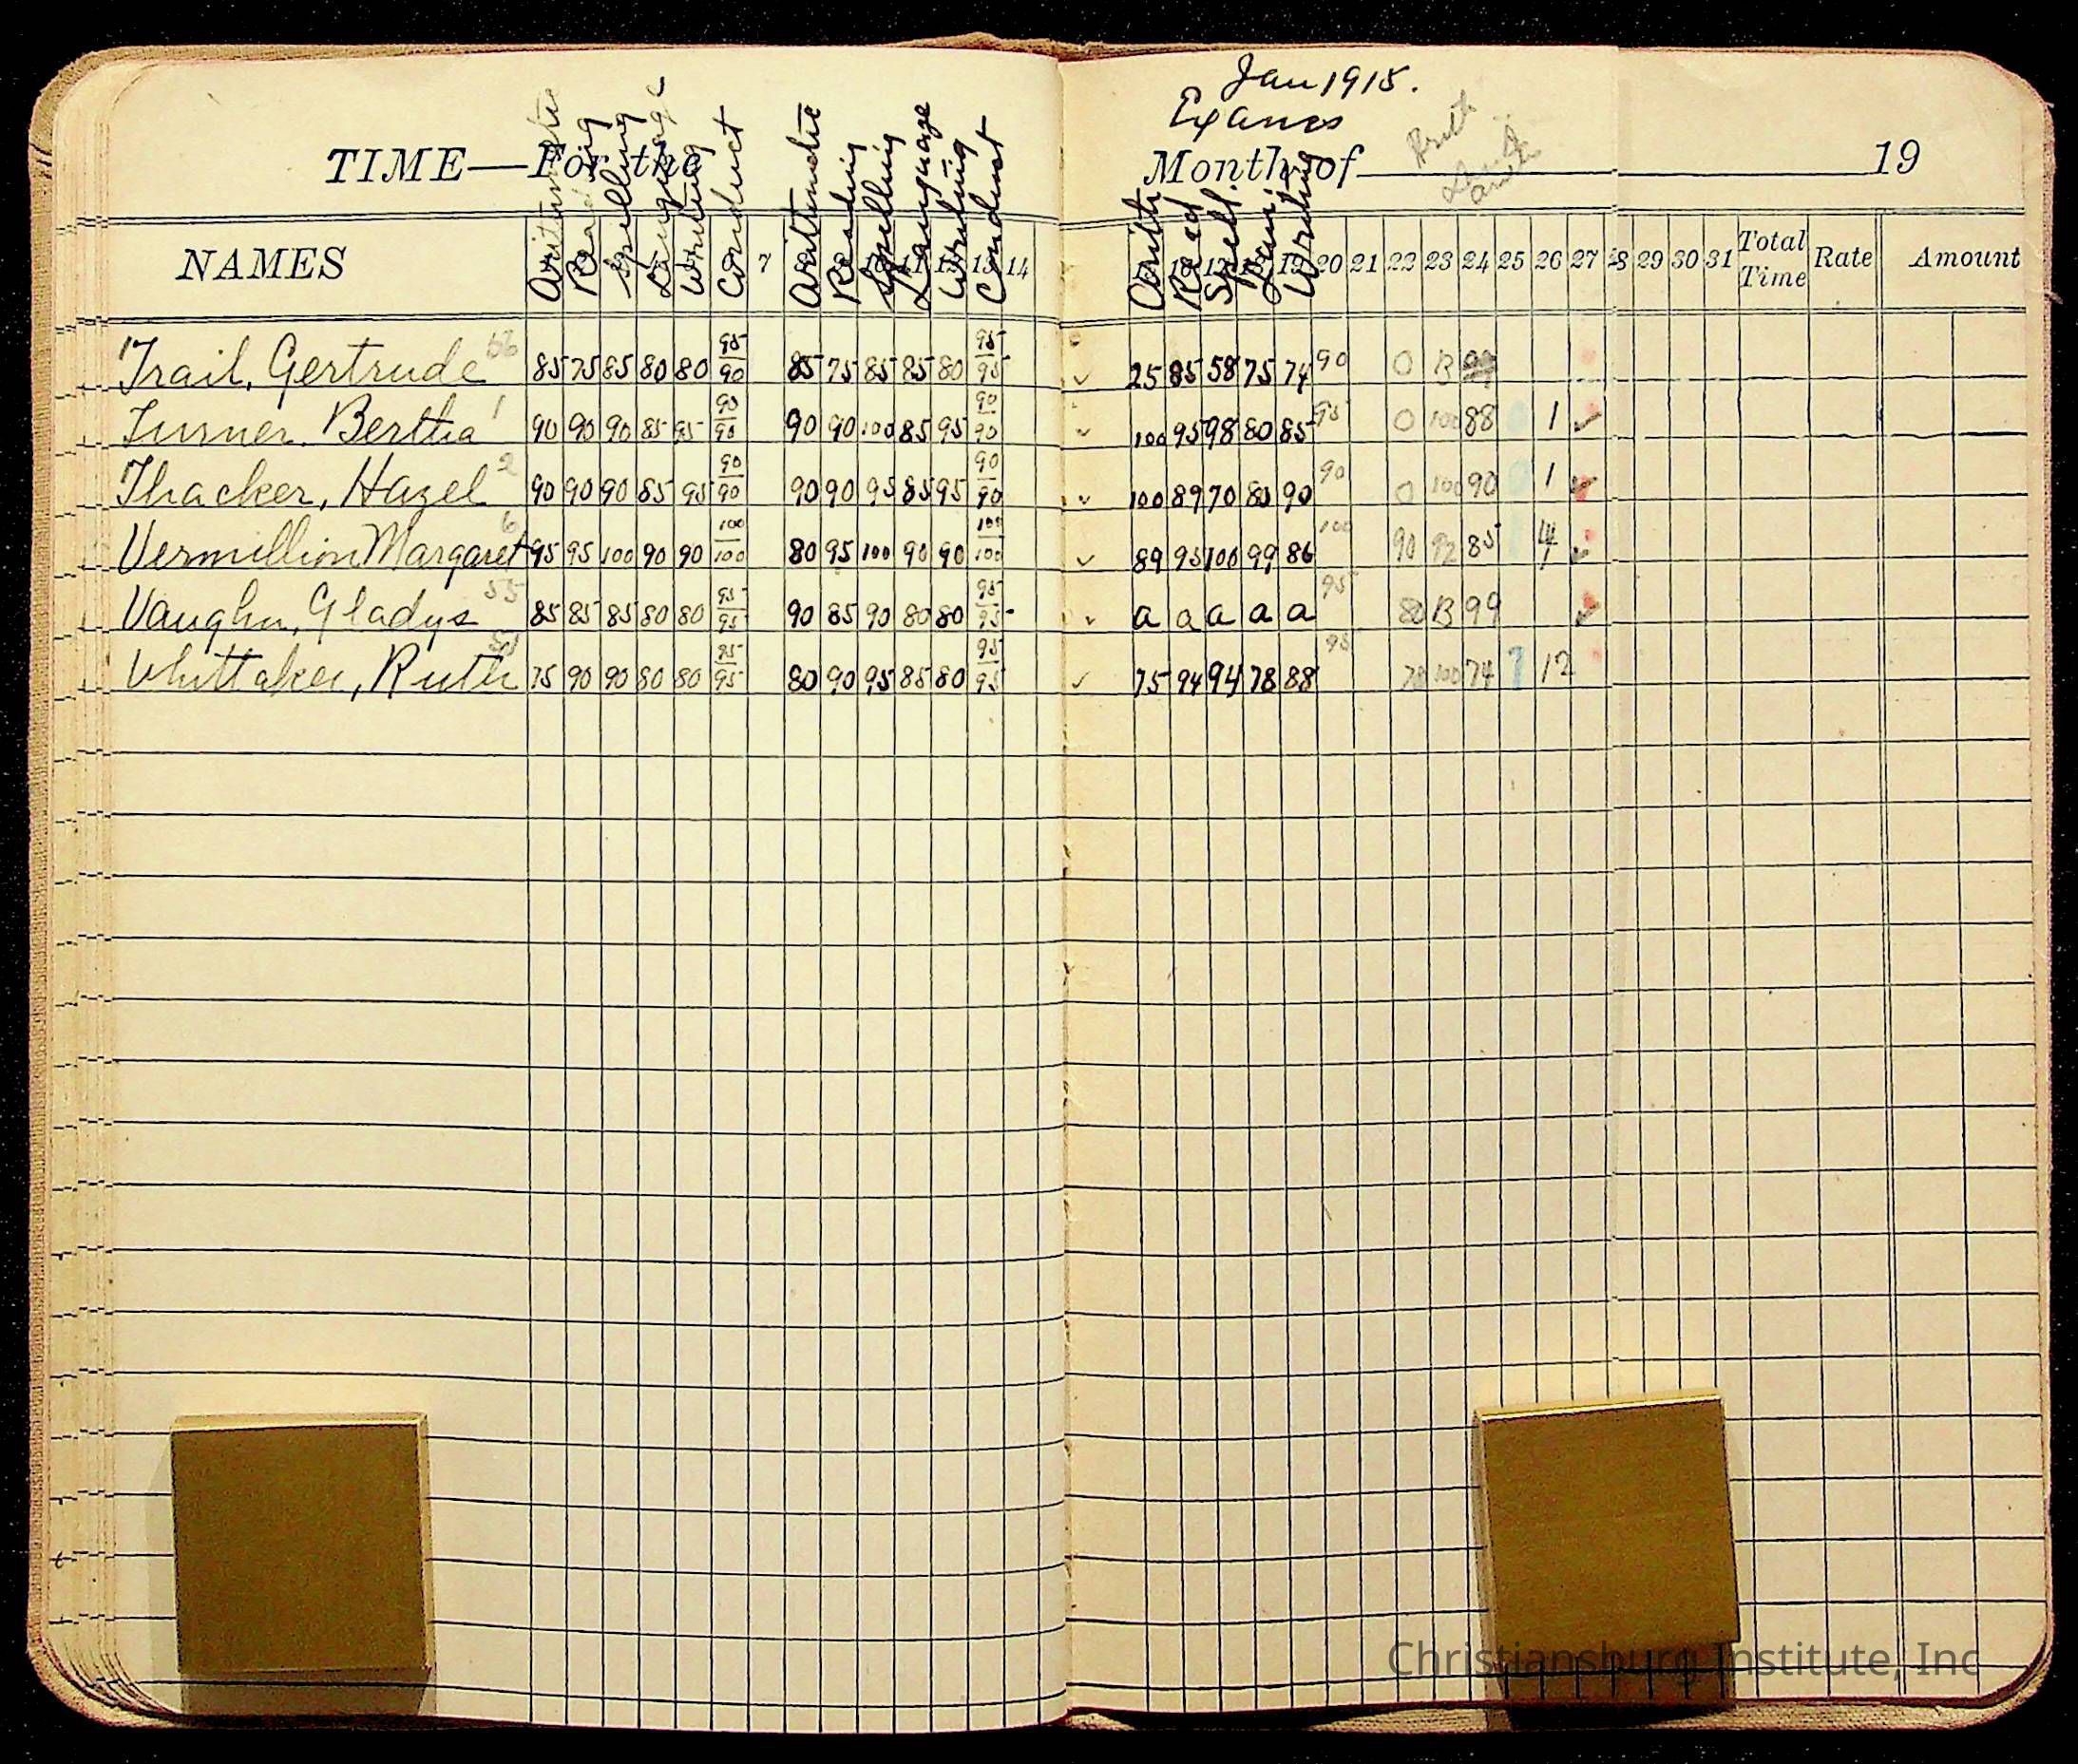 Jan 1915.
Exams
TIME—For the Month of 19
Arithmetic Reading Spelling Language Writing Conduct Arithmetic Reading Spelling Language Writing Conduct Arith Read Spell. Writing
NAMES 7 14 20 21 22 23 24 25 26 27 28 29 30 31 Total Time Rate Amount
Trail, Gertrude 56 85 75 85 80 80 95 90 85 75 85 85 80 95 95 ✓ 25 85 58 75 74 90 0 B
Turner, Bertha 1 90 90 90 85 95 90 90 90 90 100 85 95 90 90 ✓ 100 95 98 80 85 95 0 100 88 1 ✓
Thacker, Hazel 2 90 90 90 85 95 90 90 90 90 95 85 95 90 90 ✓ 100 89 70 80 90 90 0 100 90 1 ✓
Vermillion Margaret 6 95 95 100 90 90 100 100 80 95 100 90 90 100 100 ✓ 89 95 100 99 86 100 90 92 85 4 ✓
Vaughn, Gladys 55 85 85 85 80 80 95 95 90 85 90 80 80 95 95 ✓ a a a a a 95 80 B 99 ✓
Whittaker, Ruth 75 90 90 80 80 95 95 80 90 95 85 80 95 95 ✓ 75 94 94 78 88 95 100 74 12
Christiansburg Institute, Inc